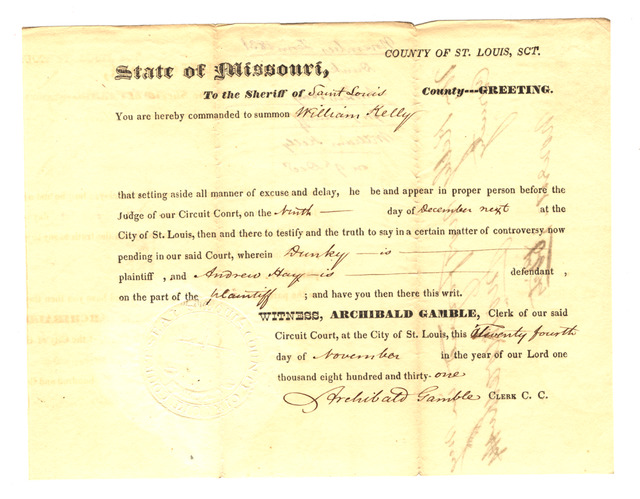 COUNTY OF ST. LOUIS, SCT.
State of Missouri,
To the Sheriff of Saint Louis County---GREETING.
You are hereby commanded to summon William Kelly
that setting aside all manner of excuse and delay, he be and appear in proper person before the
Judge of our Circuit Conrt, on the Ninth — day of December next at the
City of St. Louis, then and there to testify and the truth to say in a certain matter of controversy now
pending in our said Court, wherein Dunky — is —
plaintiff , and Andrew Hay — is — defendant ,
on the part of the plaintiff ; and have you then there this writ.
WITNESS, ARCHIBALD GAMBLE, Clerk of our said
Circuit Court, at the City of St. Louis, this Twenty fourth
day of November in the year of our Lord one
thousand eight hundred and thirty-one
Archibald Gamble CLERK C. C.